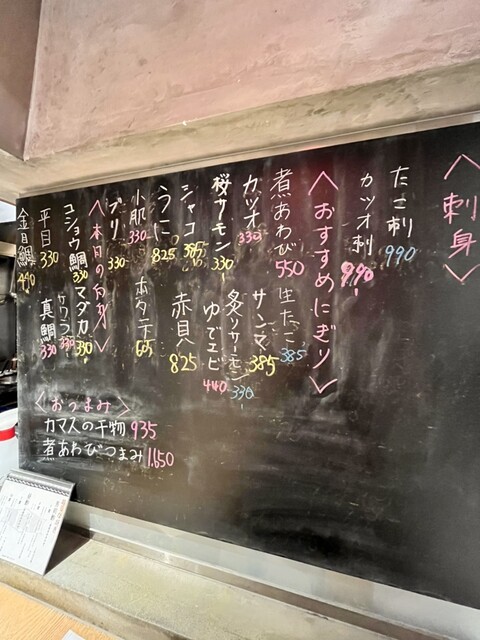 〈刺身〉
たこ刺 990
カツオ刺 990
〈おすすめにぎり〉
煮あわび 550
生たこ 385
カツオ 330
サンマ 385
桜サーモン 330
炙りサーモン 330
シャコ 385
ゆでエビ 440
うに 825
赤貝 825
小肌 330
ホタテ 605
ブリ 330
〈本日の白身〉
コショウ鯛 330
マダカ 330
サワラ 330
平目 330
真鯛 330
金目鯛 440
〈おつまみ〉
カマスの干物 935
煮あわびつまみ 1,650